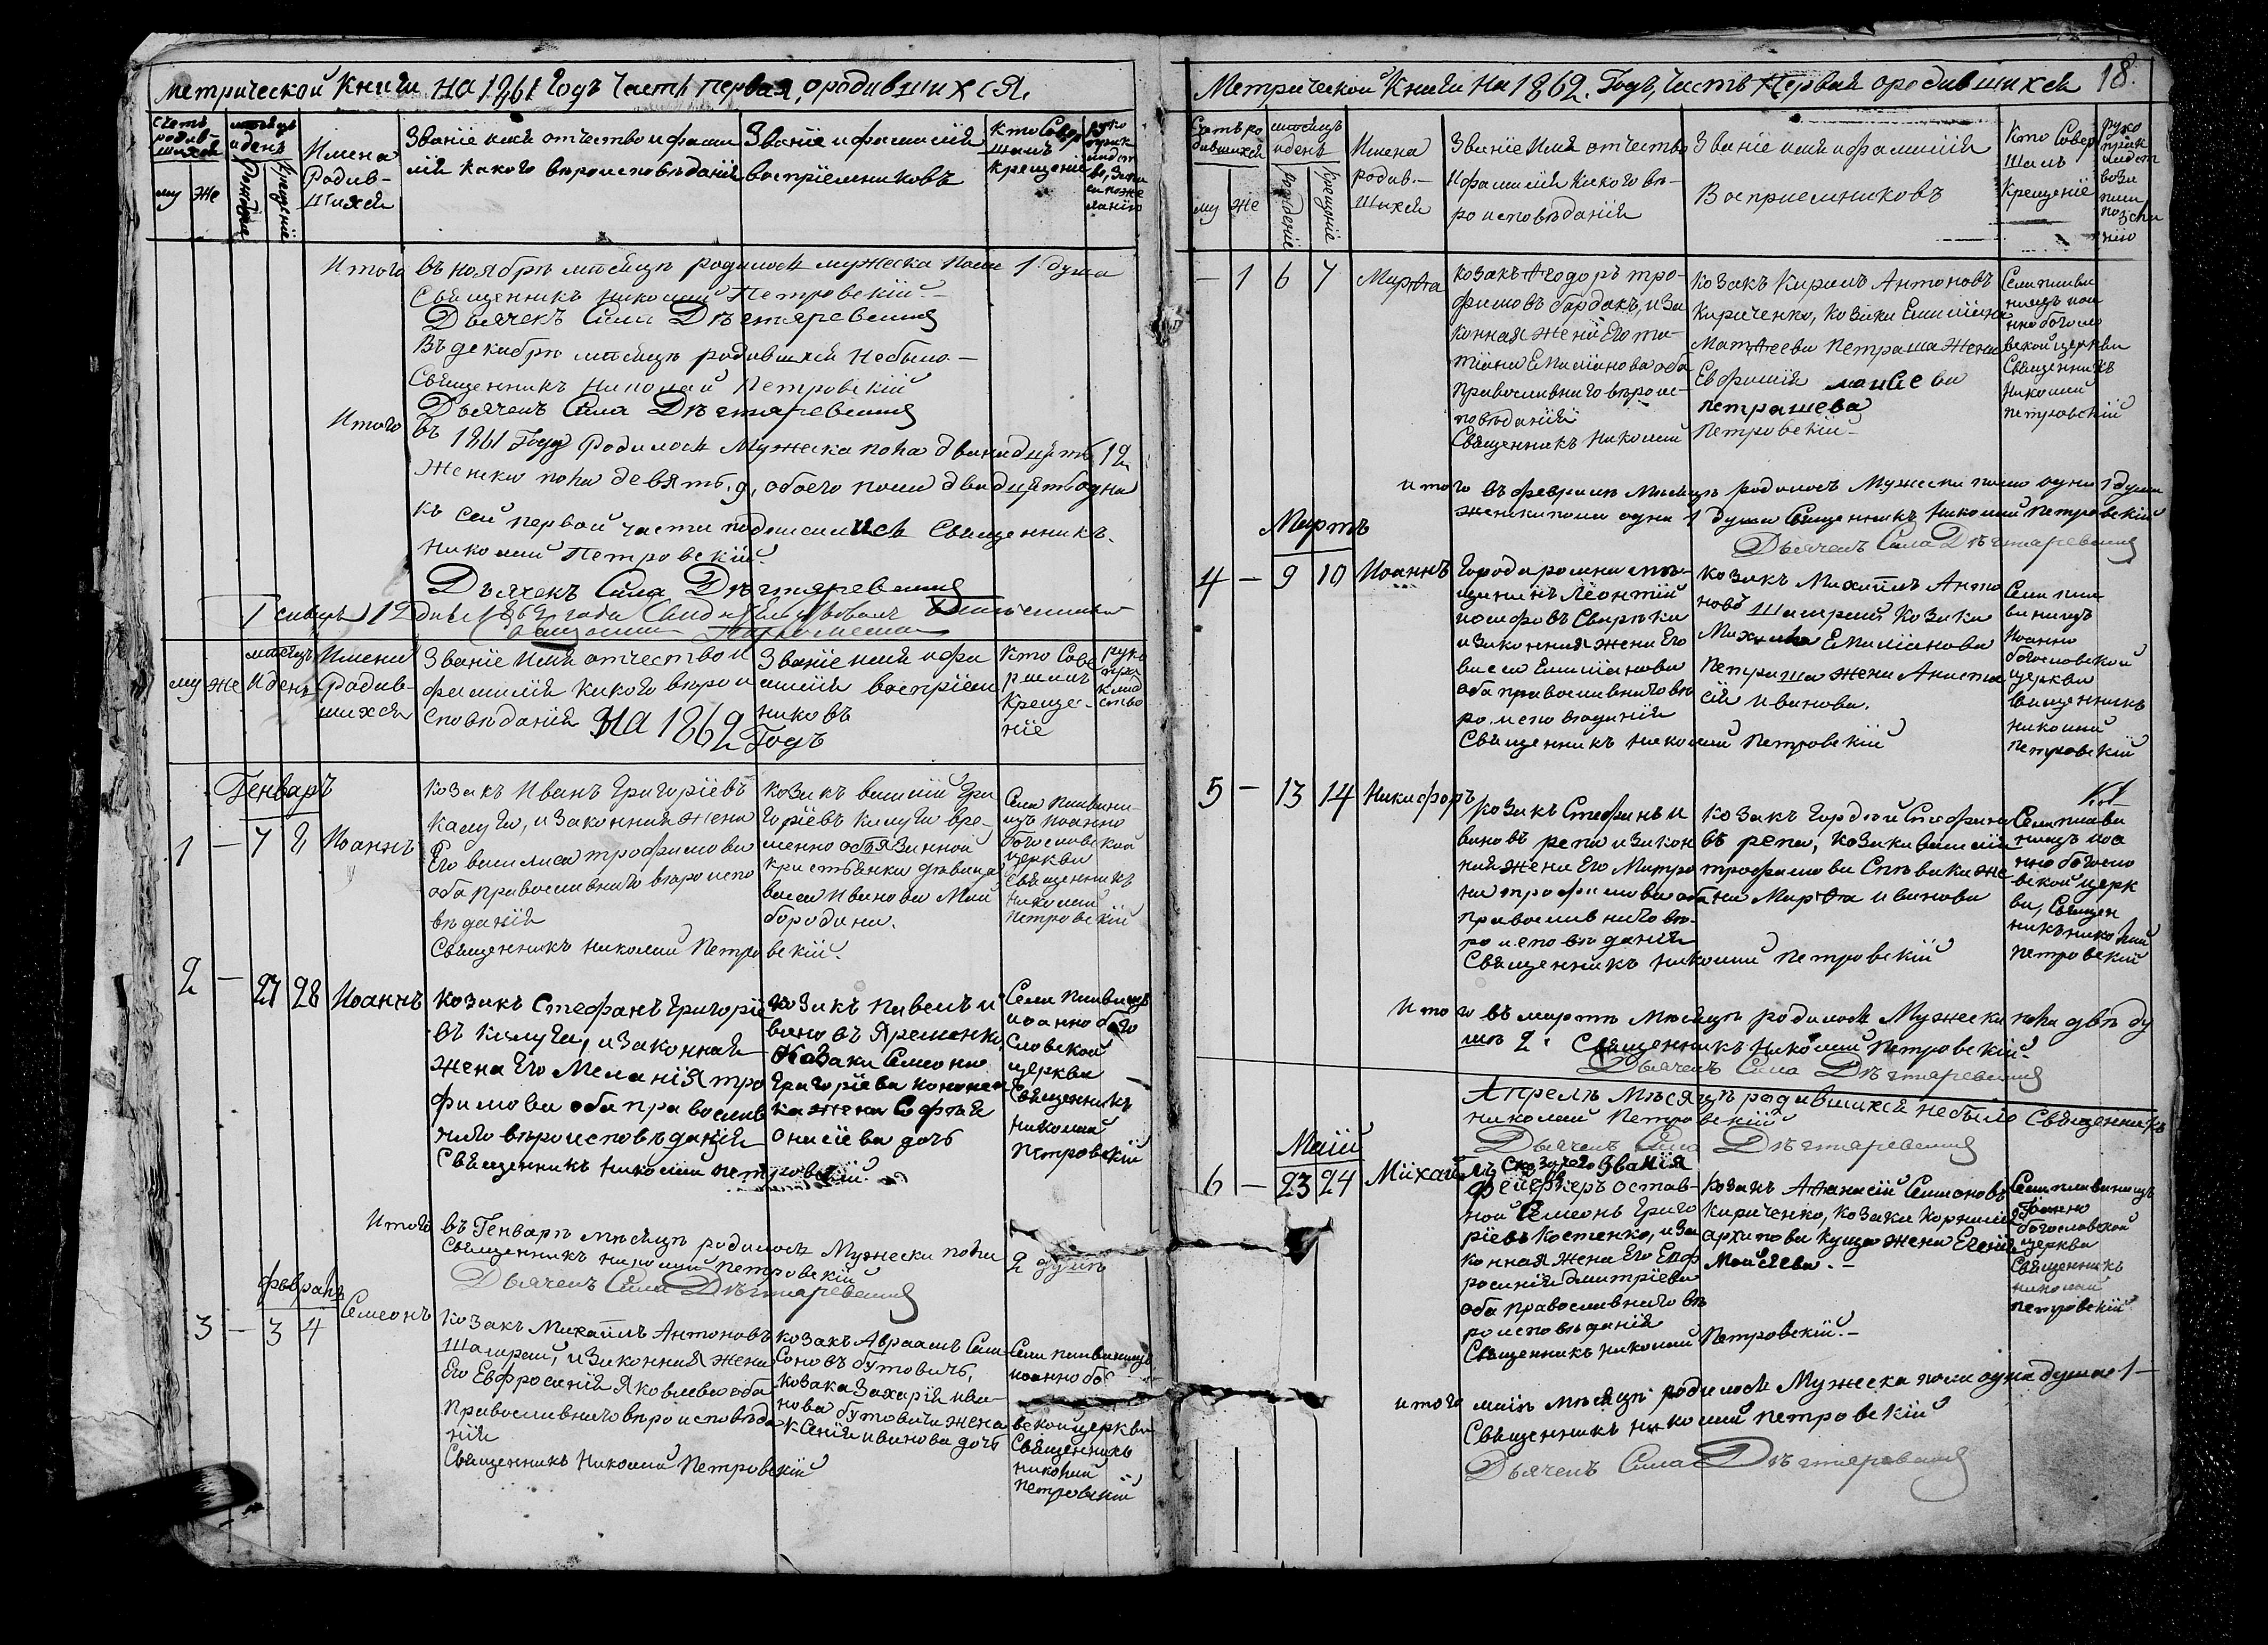 Метрической Книги на 1861 Годъ Часть первая, ородившихся.
Счетъ родив-шихся
му же
мѣсяцъ иденъ
Рожденіе
Крещеніе
Имена
Родив-
шихся
Званіе имя отчество и фами
лія какого вѣроисповѣданія
Званіе ифамилія
воспріемниковъ
Кто Совер
шалъ
крещеніе
Итого въ ноябрѣ мѣсяцѣ родилося мужеска пола 1 душа
Священникъ Николай Петровскій.-
Дьячекъ Сила Дѣгтяревскій
Въ декабрѣ мѣсяцѣ родившихся небыло.-
Священникъ Николай Петровскій
Дьячекъ Сила Дѣгтяревскій
Итого
въ 1861 Году Родилося Мужеска пола двенадцять 12
Женска пола девять. 9, обоего пола двадцять одна
къ сей первой части подписалися Священникъ.
Николай Петровскій.
Дьячекъ Сила Дѣгтяревскій
му же
мѣсяцъ
иденъ
Имена
Родив-
шихся
Званіе имя отчество и
фамилія какого вѣрои
сповѣданія НА 1862 Годъ
Званіе имя ифа
милія воспріем
никовъ
Кто Сове
ршалъ
Креще-
ніе
руко
при
клад
ство
Генварь
1 - 7 8 Иоаннъ
Козакъ Иванъ Григоріевъ
Калуга, и законная жена
Его василиса трофимова
оба православнаго вѣроиспо
вѣданія
Священникъ Николай Петровскій.
Козакъ василій Гри
горіевъ Калуга вре-
менно обязанной
крестьянки дѣвица
васса Иванова Май
бородина.
Села Пливани-
цъ Иоанно
богословской
церкви
Священникъ
Николай
Петровскій
2 - 27 28 Иоаннъ
Козакъ Стефанъ Григоріе
въ Калуга, и Законная
жена Его Меланія тро
фимова оба православ
наго вѣроисповѣданія
Священникъ Николай Петровскій.
Козакъ Павелъ и
вановъ Яременко,
Козака Семена
Григоріева Кононен
ка жена Софія
Онисіева дочь
Села Пливаницъ
иоанно бого
Словской
церкви
Священникъ
Николай
Петровскій
Итого въ Генварѣ мѣсяцѣ родилося Мужеска пола 2 душѣ
Священникъ Николай Петровскій
Дьячекъ Сила Дѣгтяревскій
февраль
3 - 3 4 Семеонъ
Козакъ Михаилъ Антоновъ
Шамрай, и Законная жена
Его Евфросинія Яковлева оба
Православнаго вѣроисповѣда
нія
Священникъ Николай Петровскій
Козакъ Авраамъ Сам
соновъ бутовичь,
Козака Захарія ива-
нова бутовича жена
Ксенія иванова дочь
Села пливаницъ
иоанно бо
вской церкви
Священникъ
Николай
Петровскій
Метрической Книги На 1862. Годъ, Часть Первая ородившихся 18.
Счетъ ро
дившихся
му же
мѣсяцъ
иденъ
Рожденіе
Крещеніе
Имена
родив.-
шихся
Званіе Имя отчество
Ифамилія какого вѣ-
роисповѣданія
Званіе имя ифамилія
Воспріемниковъ
Кто Совер
шалъ
Крещеніе
- 1 6 7 Марѳа
Козакъ Ѳеодоръ тро-
фимовъ бардакъ, и за
конная жена Его та-
тіана Емиліанова оба
Православнаго вѣроис-
повѣданія
Священникъ Николай Петровскій.-
Козакъ Кирилъ Антоновъ
Кириченко, козака Емиліана
Матѳеева Петраша жена
Евфимія моисеева
петрашева
Села плива
ницъ иоа
нно богосло
вской церкви
Священникъ
Николай
Петровскій
итого въ февралѣ Мѣсяцѣ родилось Мужеска пола одна 1 душа
женска пола одна 1 душа Священникъ Николай Петровскій
Дьячекъ Сила Дѣгтяревскій
Мартъ
4 - 9 10 Иоаннъ
Города ромна мѣ-
щанинъ Леонтій
иосифовъ Свирѣка
и законная жена Его
васса Емиліанова
оба православнаго вѣ
роисповѣданія
Священникъ Николай Петровскій
Козакъ Михаилъ Анто
новъ Шамрай Козака
Михаила Емиліанова
Петраша жена Анаста
сія иванова.
Села пли
ваницъ
Иоанно
богословской
церкви
Священникъ
Николай
Петровскій
5 - 13 14 Никифоръ
Козакъ Стефанъ и
вановъ репа и закон
ная жена Его Матро
на трофимова оба
православнаго вѣ-
роисповѣданія
Священникъ Николай Петровскій
Козакъ Гордѣй Стефано
въ репа, козака василія
трофимова Спѣвака же
на Марѳа иванова
Села плава
ницъ иоа
нно богосло
вской церк
ви, Священ
никъ николай
Петровскій
Итого въ мартѣ Мѣсяцѣ родилося Мужеска пола двѣ ду
шѣ 2. Священникъ Николай Петровскій.-
Дьячекъ Сила Дѣгтяревскій
Апрель Мѣсяцъ родившихся небыло Священникъ
Николай Петровскій
Дьячекъ Сила Дѣгтяревскій
Маій
6 - 23 24 Михаилъ
Съ Козачего Званія
фейерверкеръ отстав-
ной Семеонъ Григо
ріевъ Костенко, и за
конная жена Его Евф
росинія дмитріева
оба православнаго вѣ
роисповѣданія
Священникъ Николай Петровскій.-
Козакъ Аѳанасій Симоновъ
Кириченко, козака Корнилія
архипова Куща жена Евгенія
Моисѣева.-
Села пливаницъ
Иоанно
богословской
церкви
Священникъ
николай
Петровскій
итого маія мѣсяцѣ родилося Мужеска пола одна душа 1-
Священникъ Николай Петровскій
Дьячекъ Сила Дѣгтяревскій